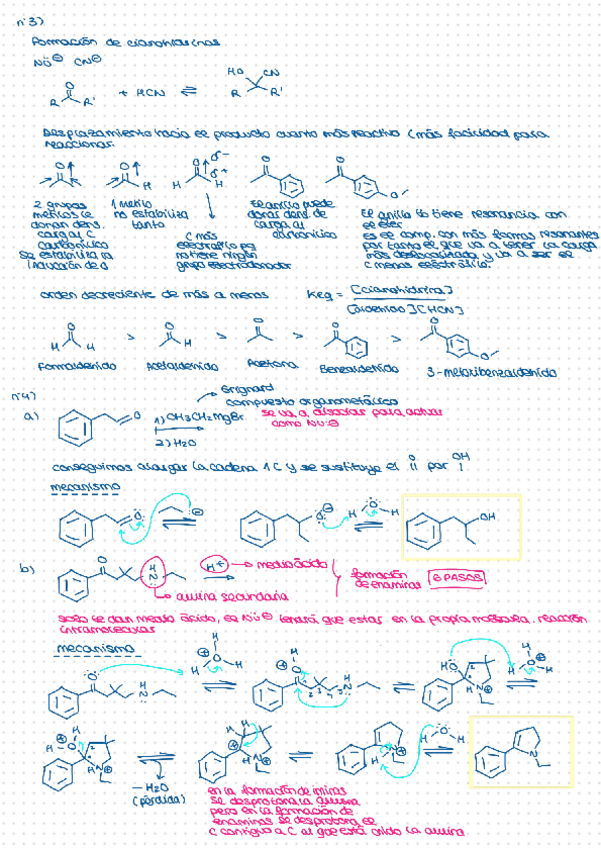 nº3)
Formación de cianohidrinas
Nü⊖ CN⊖
HO CN
O
R R' + HCN ⇌ R R'
Desplazamiento hacia el producto cuanto más reactivo (más facilidad para
reaccionar.
2 grupos
metilos le
donan dens.
carga al C
carbonílico
Se estabiliza
1 metilo
no estabiliza
tanto
C más
electrofílico pq
no tiene ningún
grupo electrodonador
El anillo puede
donar dens de
carga al
carbonílico
El anillo tiene resonancia con
el éter
es el comp. con más formas resonantes
por tanto el que va a tener la carga
más deslocalizada y va a ser el
C menos electrófilo.
orden decreciente de más a menos Keq = [cianohidrina]
[aldehído][HCN]
> > > >
Formaldehído Acetaldehído Acetona Benzaldehído 3-metoxibenzaldehído
nº4)
Grignard
compuesto organometálico
a) 1) CH3CH2MgBr se va a disociar para actuar
como Nü⊖
2) H2O
conseguimos alargar la cadena 1C y se sustituye el O por OH
mecanismo
OH
b) H+ medio ácido
formación
de enaminas
6 PASOS
amina secundaria
solo se da en medio ácido, el Nü⊖ tendrá que estar en la propia molécula. reacción
intramolecular
mecanismo
-H2O
(pérdida)
en la formación de iminas
se desprotona la amina
pero en la formación de
enaminas se desprotona el
C contiguo a C al que está unido la amina